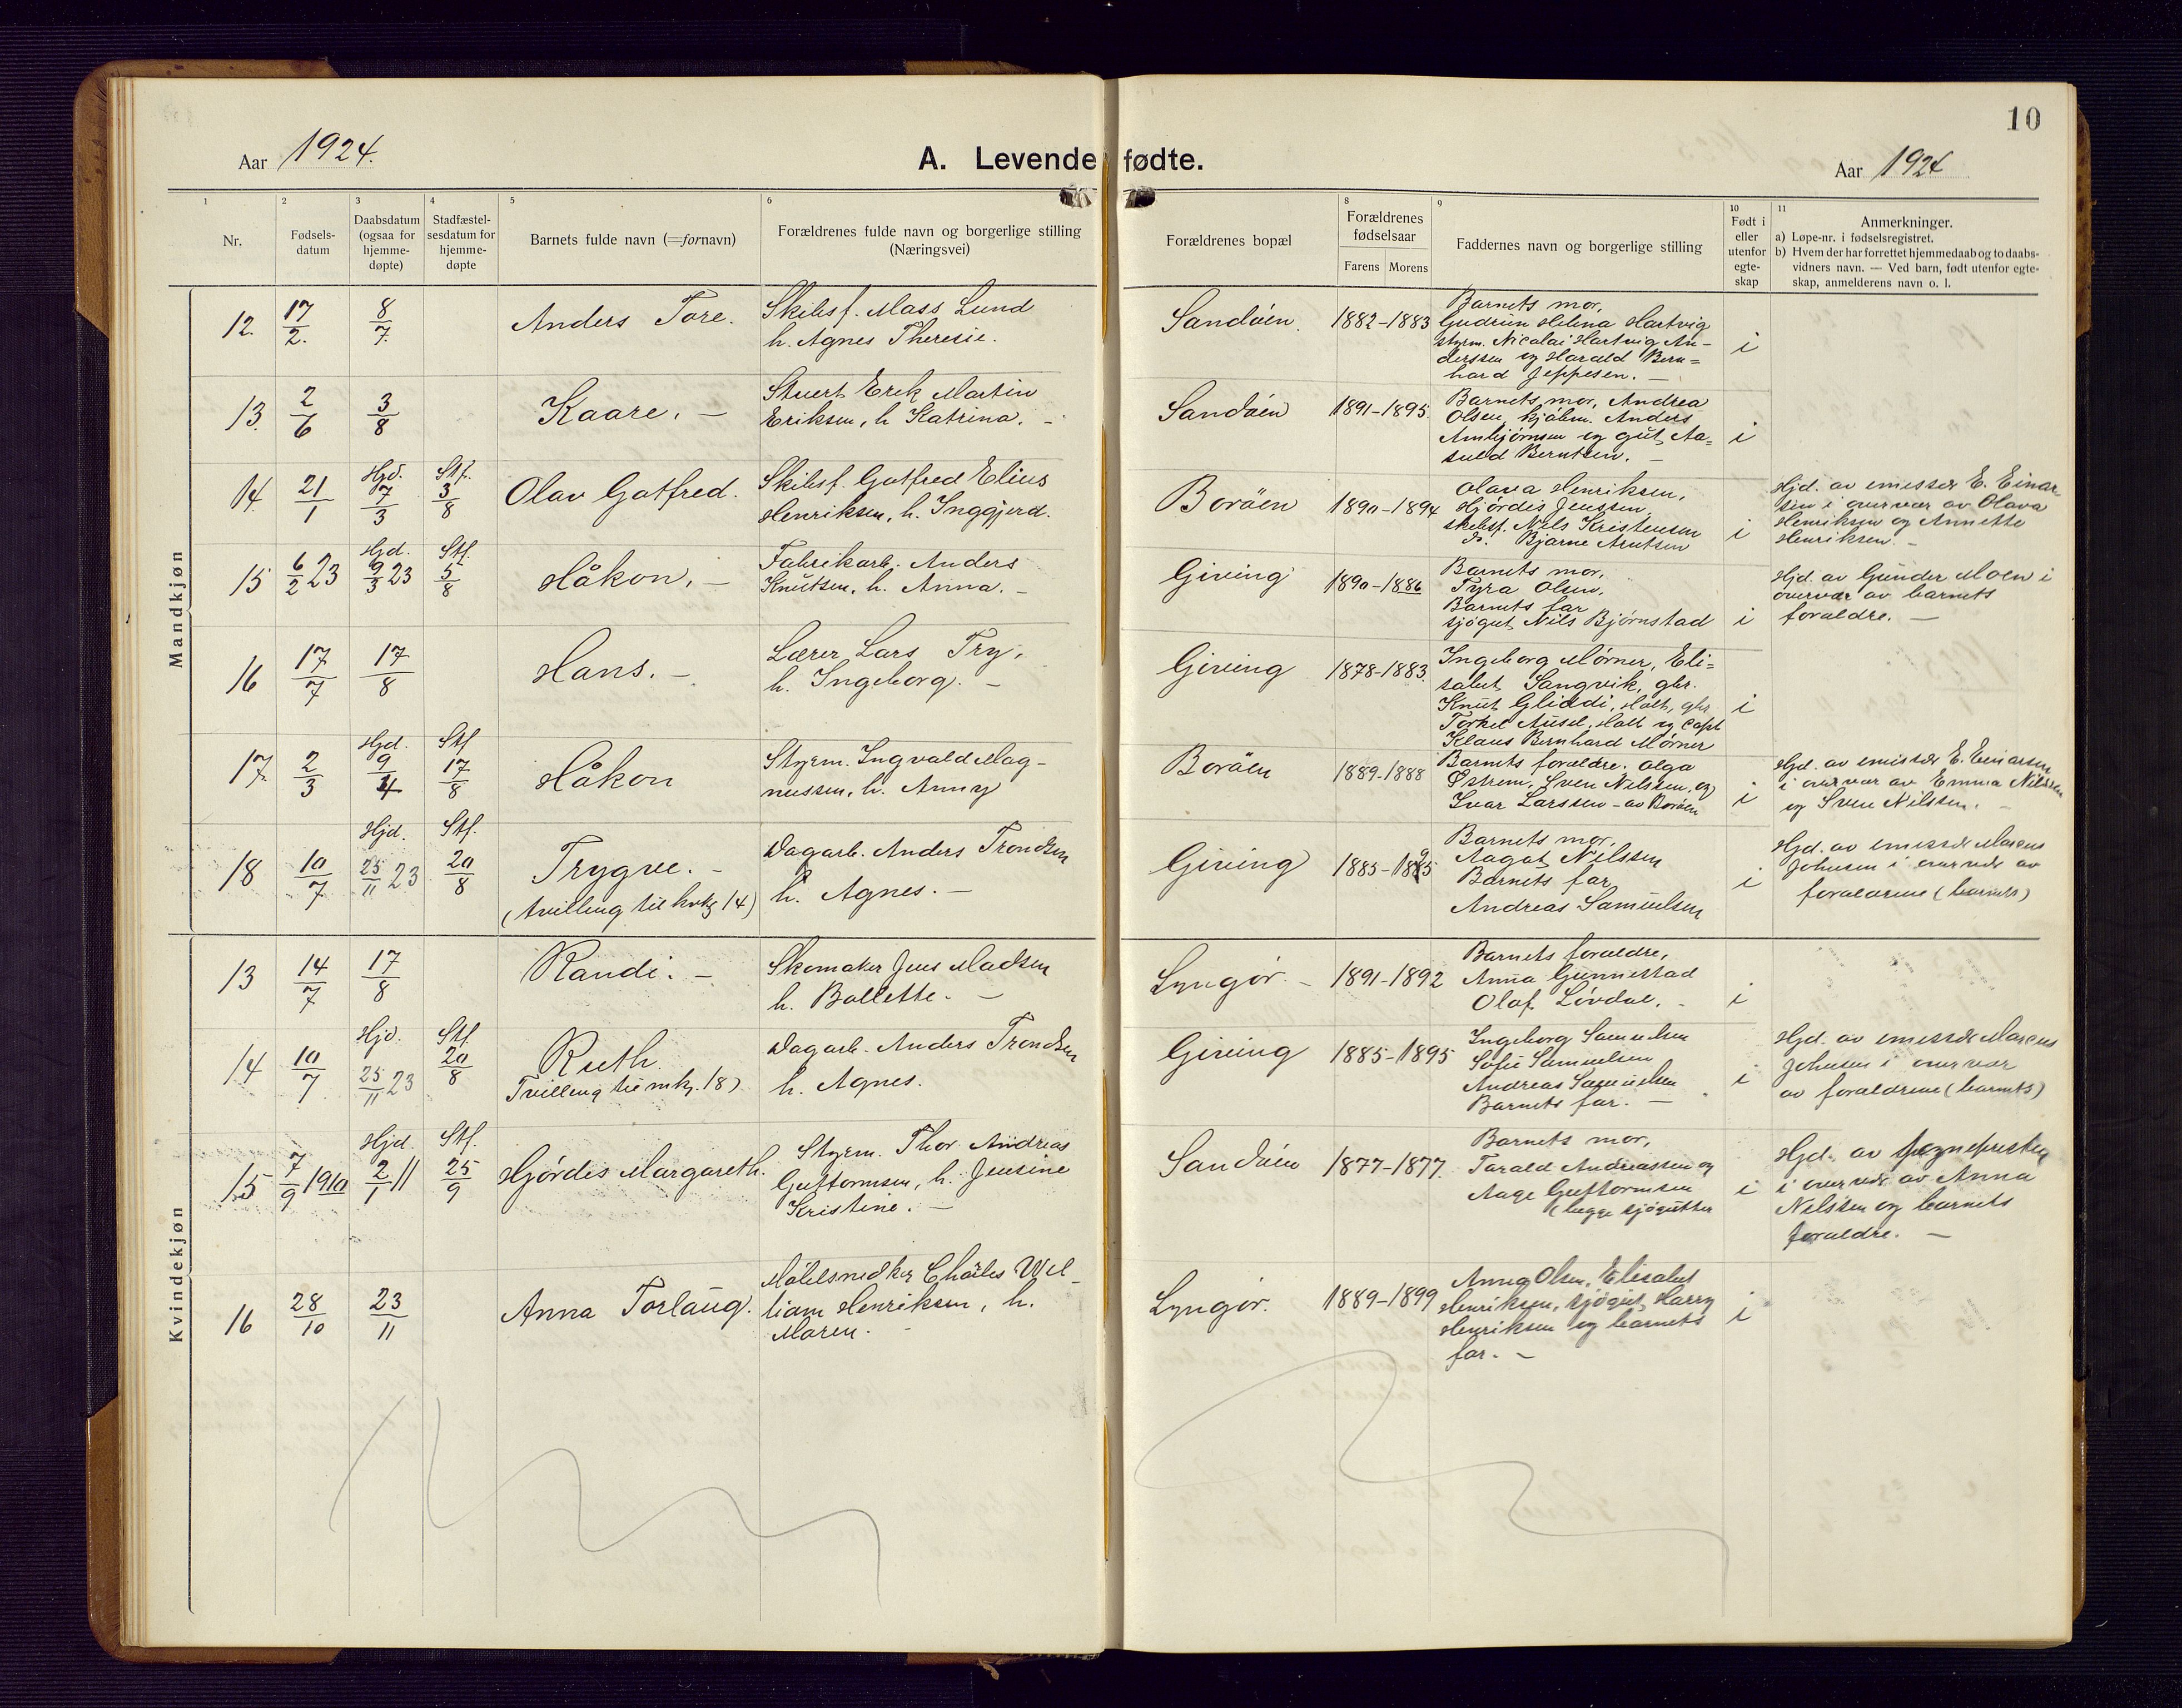 10
Aar 1924.
A. Levende fødte.
Aar 1924
1 2 3 4 5 6 8 9 10 11
Nr.
Fødsels-
datum
Daabsdatum
(ogsaa for
hjemme-
døpte)
Stadfæstel-
sesdatum for
hjemme-
døpte
Barnets fulde navn (=fornavn)
Forældrenes fulde navn og borgerlige stilling
(Næringsvei)
Forældrenes bopæl
Forældrenes
fødselsaar
Farens Morens
Faddernes navn og borgerlige stilling
Født i
eller
utenfor
egte-
skap
Anmerkninger.
a) Løpe-nr. i fødselsregistret.
b) Hvem der har forrettet hjemmedaab og to daabs-
vidners navn. — Ved barn, født utenfor egte-
skap, anmelderens navn o. l.
Mandkjøn
12. 17/2. 8/7. Anders Tore.
Skibsf. Mass Lund
h. Agnes Theresie.
Sandøen. 1882-1883
Barnets mor,
Gudrun Helena Hartvig
styrm. Nicolai Hartvig An-
derssen og Harald Bern=
hard Jeppesen. —
i
13. 2/6 3/8 Kaare. —
Stuert Erik Martin
Eriksen, h Katrina. —
Sandøen 1891-1895.
Barnets mor, Andrea
Olsen, Anders
og gut Aa=
Berntsen. —
i
14. 21/1 Hjd. 7/3 Stf. 3/8 Olav Gotfred.
Skibsf. Gotfred Elius
Henriksen, h. Inggjerd.
Borøen 1890-1894
Olava Henriksen,
Hjördis Jenssen,
skibsf. Nils Kristensen
do. Bjarne
i
Hjd. av emissær E. Einar-
sen i overvær av Olava
Henriksen og Annette
Henriksen. —
15 6/2 23 Hjd. 9/3 23 Stf. 5/8 Håkon. —
Fabrikarb. Anders
Knutsen, h. Anna. —
Giving 1890-1886
Barnets mor,
Tyra Olsen,
Barnets far
sjøgut Nils Bjørnstad
i
Hjd. av Gunder Moen i
overvær av barnets
foraldre. —
16 17/7 17/8 Hans. —
Lærer Lars Try,
h. Ingeborg. —
Giving 1878-1883.
Ingeborg Mörner, Eli=
sabet Sangvik, gbr.
Knut Holt, gbr
Torkel Holt og Capt
Klaus Bernhard Mörner
i
17. 2/3 Hjd. 9/4 Stf 17/8 Håkon
Styrm. Ingvald Mag-
nussen, h. Anny
Borøen 1889-1888
Barnets foraldre. Olga
Østrem, Sven Nilssen, og
Ivar Larssen - av Borøen
i
Hjd. av emissær E. Einarsen
i overvær av Emma Nilssen
og Sven Nilssen. —
18 10/7 Hjd. 25/11 23 Stf. 20/8 Trygve. —
(tvilling til kvkj 14)
Dagarb. Anders Trondsen
h. Agnes. —
Giving 1885-1895
Barnets mor,
Aagot Nilssen
Barnets far
Andreas Samuelsen
i
Hjd. av emissær Marcus
Johnsen i overvær av
foraldrene (barnets)
Kvindekjøn
13 14/7 17/8 Randi. —
Skomaker Jens Madsen
h. Bollette. —
Lyngør. — 1891-1892
Barnets foraldre,
Anna Gunnestad
Olaf Lövdal. —
i
14 10/7 Hjd. 25/11 23 Stf 20/8 Ruth.
Tvilling til mkj. 18)
Dagarb. Anders Trondsen
h. Agnes.
Giving 1885-1895
Ingeborg Samuelsen
Sofie Samuelsen
Andreas Samuelsen
Barnets far. —
i
Hjd. av emissær Marcus
Johnsen i overvær
av foraldrene (barnets)
15 7/9 1910 Hjd. 2/1 11 Stf. 25/9 Hjördis Margareth.
Styrm. Thor Andreas
Guttormsen, h. Jensine
Kristine. —
Sandøen 1877-1877.
Barnets mor,
Tarald Andreassen og
Aage Guttormsen
(begge sjøgutter
i
Hjd. av sognepresten
i overvær av Anna
Nilssen og barnets
foraldre. —
16 28/10 23/11 Anna Torlaug.
Møbelsnedker Charles Wil-
liam Henriksen, h.
Maren. —
Lyngør. 1889-1899
Anna Olsen, Elisabet
Henriksen, sjøgut Harry
Henriksen og barnets
far. —
i